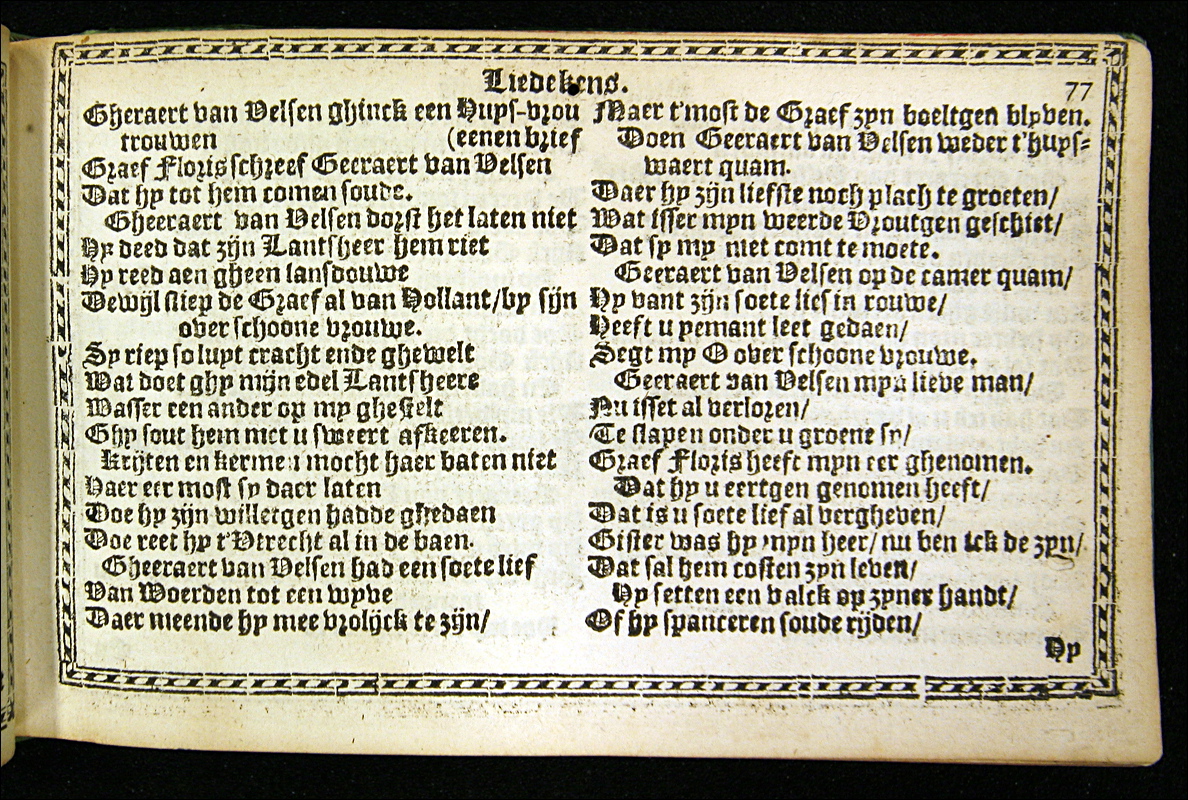 Liedekens.
77
Gheraert van Velsen ghinck een Hups-vrou
trouwen (eenen brief
Graef Floris schreef Geeraert van Velsen
Dat hy tot hem comen soude.
Gheeraert van Velsen dorst het laten niet
Hy deed dat zijn Lantsheer hem riet
Hy reed aen gheen lansdouwe
Dewijl sliep de Graef al van Hollant/by sijn
over schoone vrouwe.
Sy riep so luyt cracht ende ghewelt
Wat doet ghy mijn edel Lantsheere
Wasser een ander op my ghestelt
Ghy sout hem met u sweert afkeeren.
Krijten en kermen mocht haer baten niet
Haer eer most sy daer laten
Doe hy zijn willetgen hadde ghedaen
Doe reet hy t'Vtrecht al in de baen.
Gheeraert van Velsen had een soete lief
Van Woerden tot een wyve
Daer meende hy mee vrolijck te zijn/
Maer t'most de Graef zyn boeltgen blyven.
Doen Geeraert van Velsen weder t'huys-
waert quam.
Daer hy zijn liefste noch plach te groeten/
Wat isser myn weerde Vroutgen geschiet/
Dat sy my niet comt te moete.
Geeraert van Velsen op de camer quam/
Hy vant zijn soete lief in rouwe/
Heeft u yemant leet gedaen/
Segt my O over schoone vrouwe.
Geeraert van Velsen myn lieve man/
Nu isset al verloren/
Te slapen onder u groene sy/
Graef Floris heeft myn eer ghenomen.
Dat hy u eertgen genomen heeft/
Dat is u soete lief al vergheven/
Gister was hy myn heer/ nu ben ick de zyn/
Dat sal hem costen zyn leven/
Hy setten een valck op zyner handt/
Of hy spanceren soude rijden/
Hy